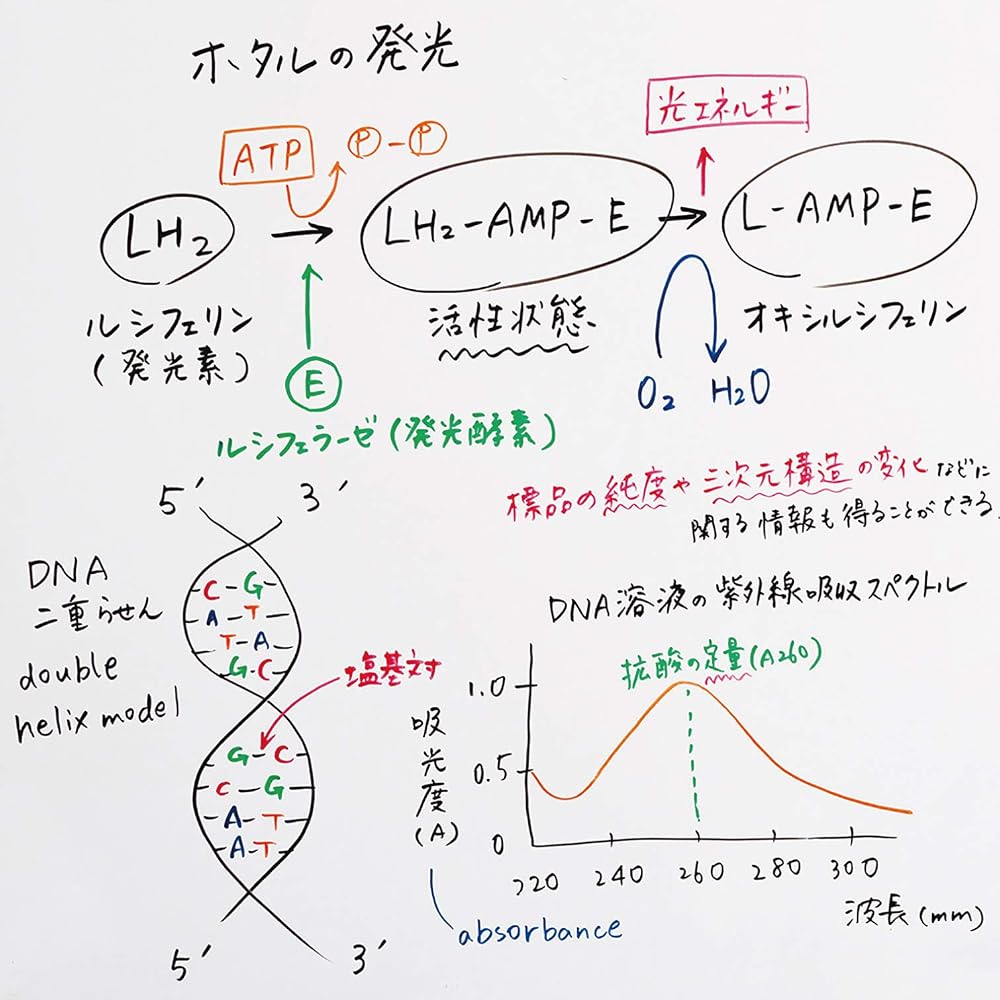 ホタルの発光
光エネルギー
ATP
P-P
LH₂
LH₂-AMP-E
L-AMP-E
ルシフェリン
(発光素)
活性状態
オキシルシフェリン
E
O₂ H₂O
ルシフェラーゼ(発光酵素)
標品の純度や三次元構造の変化などに
関する情報も得ることができる.
5′ 3′
DNA
二重らせん
double
helix model
C-G
A-T
T-A
G-C
塩基対
G-C
C-G
A-T
A-T
5′ 3′
DNA溶液の紫外線吸収スペクトル
核酸の定量(A260)
1.0
0.5
0
吸光度(A)
220 240 260 280 300
波長(mm)
absorbance